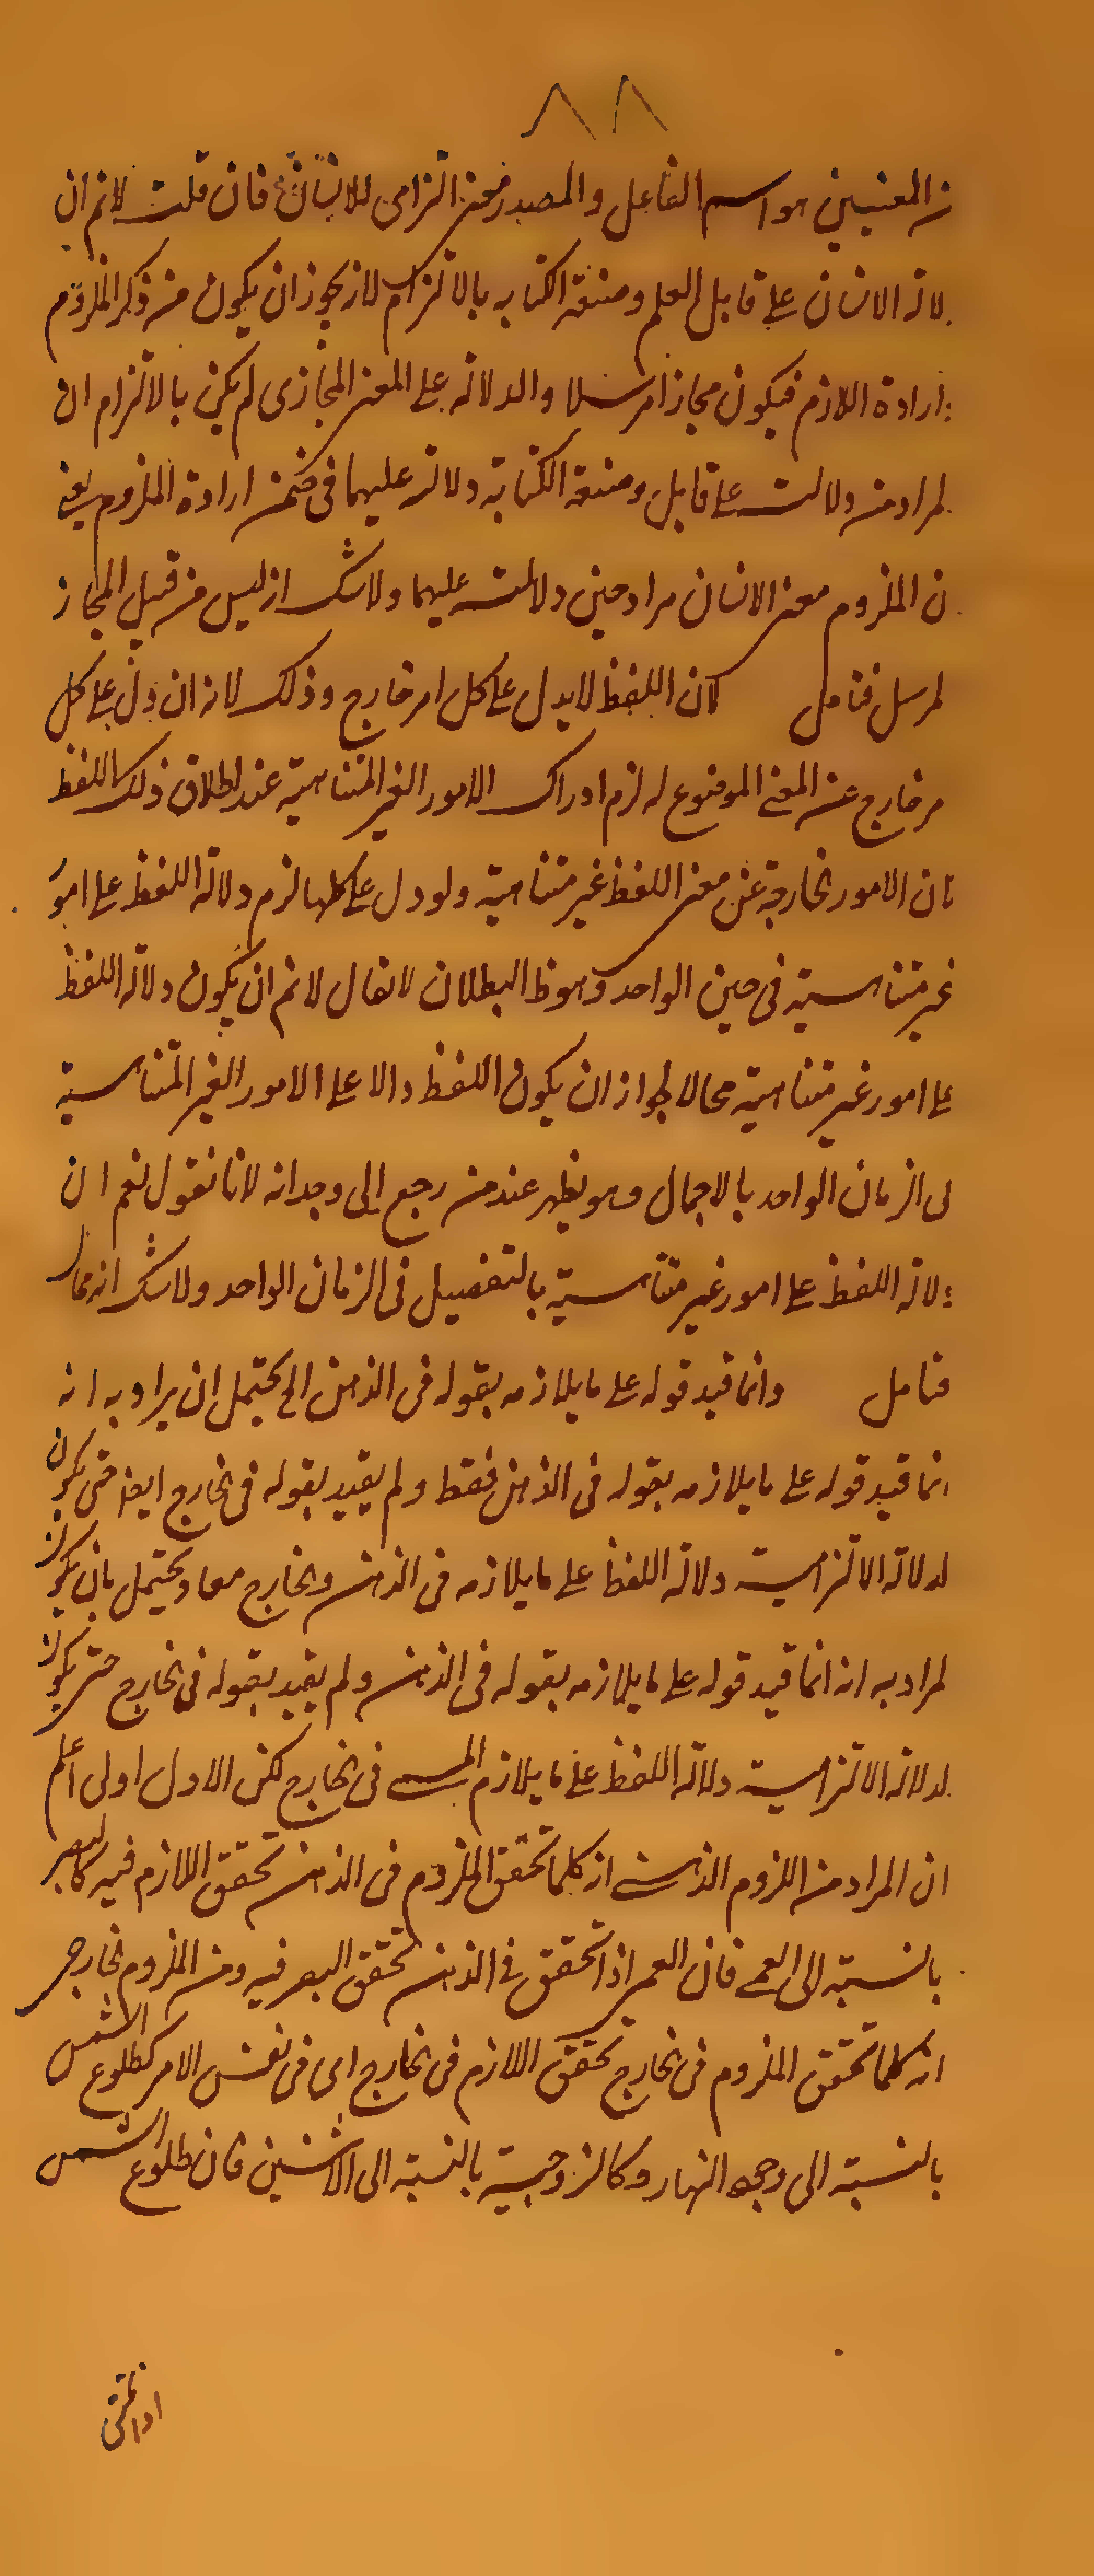 ٨٨
من المعنيين هو اسم الفاعل والمصدر معنى التزامى للانسان فان قلت لانم ان
دلالة الانسان على قابل العلم وصنعة الكتابه بالالتزام لانه يجوز ان يكون من ذكر الملزوم
وارادة اللازم فيكون مجازا مرسلا والدلالة على المعنى المجازى لم يكن بالالتزام
المراد من دلالته على قابل وصنعة الكتابة دلالته عليهما فى ضمن ارادة الملزوم يعنى
ان الملزوم معنى الانسان مراد حين دلالته عليهما ولا شك انه ليس من قبيل المجاز
المرسل فتامل كان اللفظ لا يدل على كل امر خارج وذلك لانه ان دل على كل
امر خارج عن المعنى الموضوع له لزم ادراك الامور الغير المتناهية عند اطلاق ذلك اللفظ
فان الامور الخارجة عن معنى اللفظ غير متناهية ولو دل على كلها لزم دلالة اللفظ على امور
غير متناهية فى حين الواحد وهو ظ البطلان لا يقال لانم ان يكون دلالة اللفظ
على امور غير متناهية محالا لجواز ان يكون اللفظ دالا على الامور الغير المتناهية
فى الزمان الواحد بالاجمال وهو يظهر عند من رجع الى وجدانه لانا نقول نعم ان
دلالة اللفظ على امور غير متناهية بالتفصيل فى الزمان الواحد ولا شك انه محال
فتامل وانما قيد قوله على ما يلازمه بقوله فى الذهن الخ يحتمل ان يراد به انه
انما قيد قوله على ما يلازمه بقوله فى الذهن فقط ولم يقيد بقوله فى الخارج ايضا حتى يكون
الدلالة الالتزامية دلالة اللفظ على ما يلازمه فى الذهن والخارج معا ويحتمل بان يكون
المراد به انه انما قيد قوله على ما يلازمه بقوله فى الذهن ولم يقيد بقوله فى الخارج حتى يكون
الدلالة الالتزامية دلالة اللفظ على ما يلازم المسمى فى الخارج لكن الاول اولى اعلم
ان المراد من اللزوم الذهنى انه كلما تحقق الملزوم فى الذهن تحقق اللازم فيه كالبصر
بالنسبة الى العمى فان العمى اذا تحقق فى الذهن تحقق البصر فيه ومن الملزوم الخارجى
انه كلما تحقق الملزوم فى الخارج تحقق اللازم فى الخارج اى فى نفس الامر كطلوع الشمس
بالنسبة الى وجود النهار وكالزوجية بالنسبة الى الاثنين فان طلوع الشمس
اذا تحقق